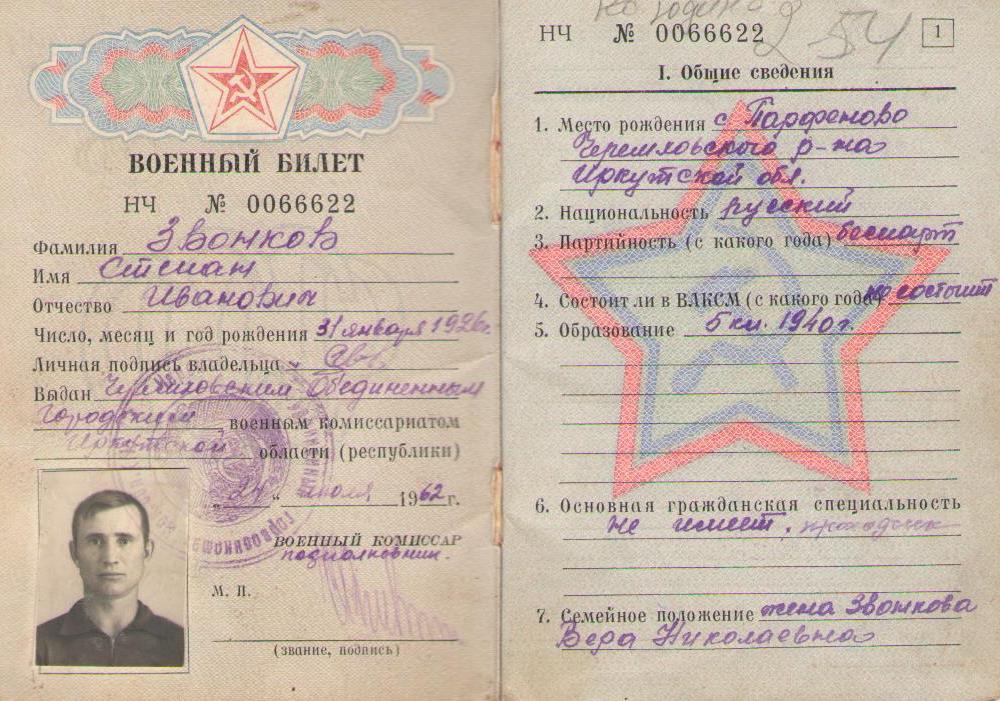 ВОЕННЫЙ БИЛЕТ
НЧ № 0066622
Фамилия Звонков
Имя Степан
Отчество Иванович
Число, месяц и год рождения 31 января 1926г.
Личная подпись владельца
Выдан Черемховским Объединенным
городским военным комиссариатом
Иркутской области (республики)
„24“ июля 1962 г.
ВОЕННЫЙ КОМИССАР
подполковник.
М. П.
(звание, подпись)
НЧ № 0066622 54 1
I. Общие сведения
1. Место рождения с Парфеново
Черемховского р-на
Иркутской обл.
2. Национальность русский
3. Партийность (с какого года) беспарт
4. Состоит ли в ВЛКСМ (с какого года) не состоит
5. Образование 5 кл. 1940г.
6. Основная гражданская специальность
не имеет, проходчик
7. Семейное положение жена Звонкова
Вера Николаевна